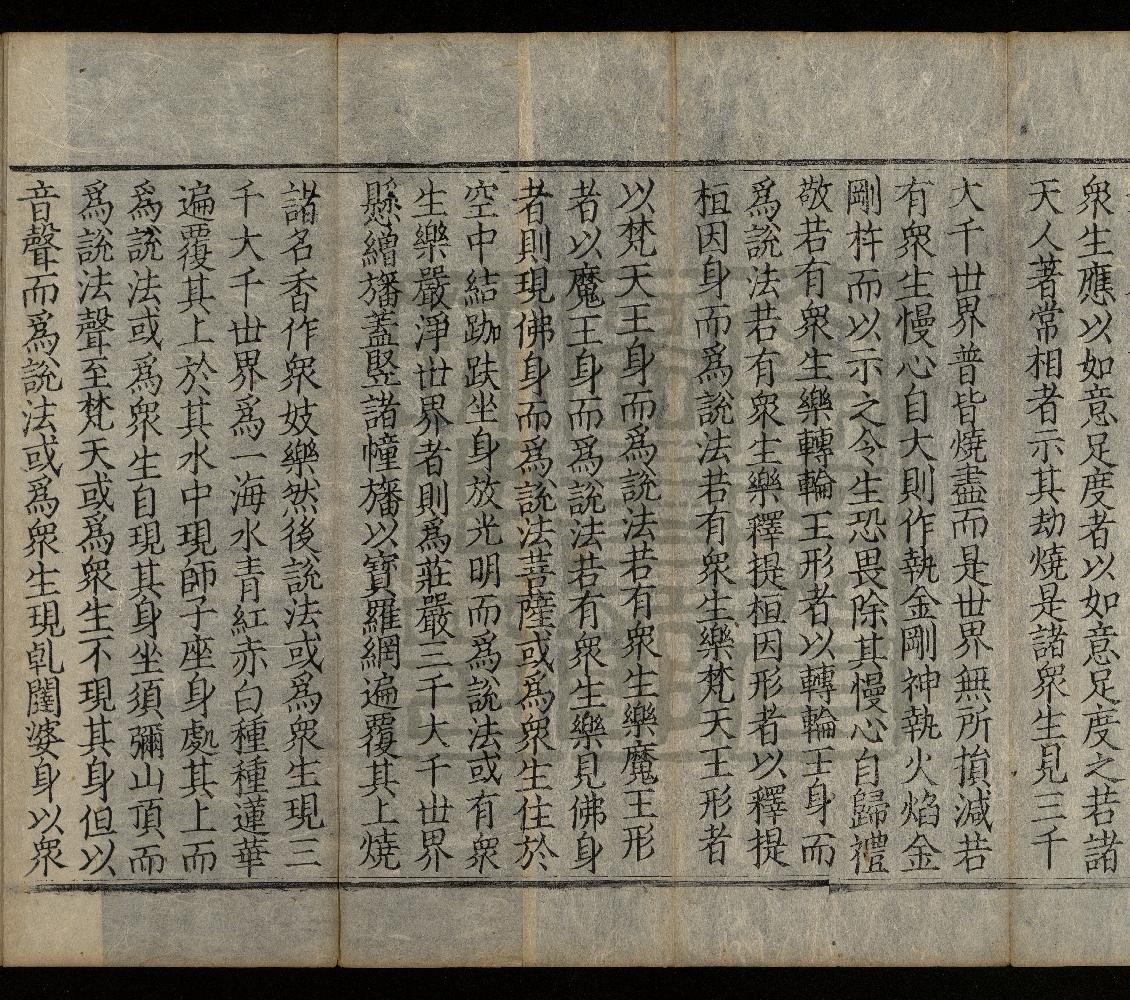 衆生應以如意足度者以如意足度之若諸
天人著常相者示其劫燒是諸衆生見三千
大千世界普皆燒盡而是世界無所損減若
有衆生慢心自大則作執金剛神執火焰金
剛杵而以示之令生恐畏除其慢心自歸禮
敬若有衆生樂轉輪王形者以轉輪王身而
爲說法若有衆生樂釋提桓因形者以釋提
桓因身而爲說法若有衆生樂梵天王形者
以梵天王身而爲說法若有衆生樂魔王形
者以魔王身而爲說法若有衆生樂見佛身
者則現佛身而爲說法菩薩或爲衆生住於
空中結跏趺坐身放光明而爲說法或有衆
生樂嚴淨世界者則爲莊嚴三千大千世界
懸繒旛蓋竪諸幢旛以寶羅網遍覆其上燒
諸名香作衆妓樂然後說法或爲衆生現三
千大千世界爲一海水青紅赤白種種蓮華
遍覆其上於其水中現師子座身處其上而
爲說法或爲衆生自現其身坐須彌山頂而
爲說法聲至梵天或爲衆生不現其身但以
音聲而爲說法或爲衆生現乹闥婆身以衆